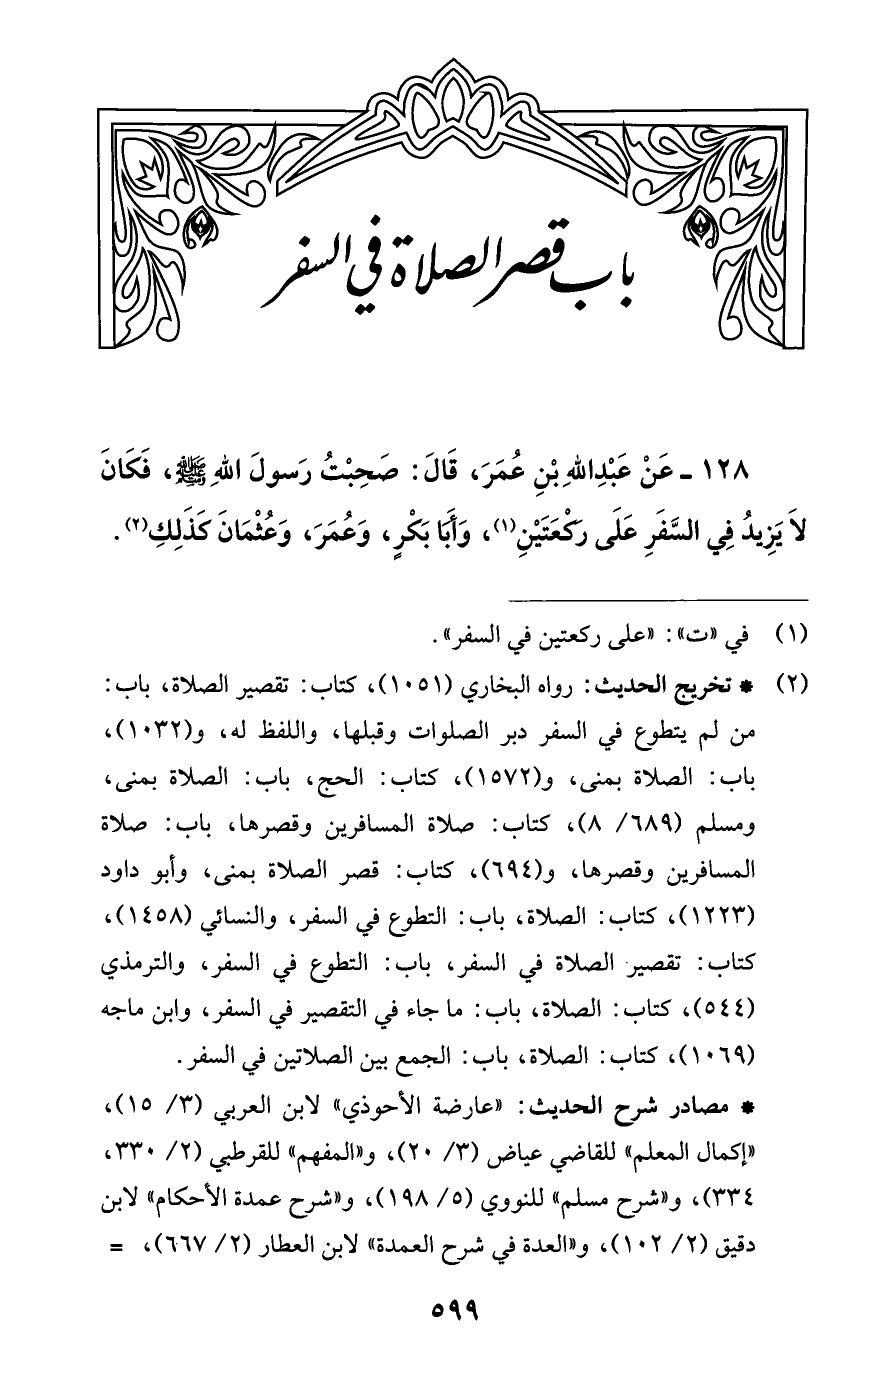 باب قصر الصلاة في السفر
١٢٨ ـ عَنْ عَبْدِاللهِ بْنِ عُمَرَ، قَالَ: صَحِبْتُ رَسولَ اللهِ ﷺ، فَكَانَ
لاَ يَزِيدُ فِي السَّفَرِ عَلَى رَكْعَتَيْنِ(١)، وَأَبَا بَكْرٍ، وَعُمَرَ، وَعُثْمَانَ كَذَلِكِ(٢).
(١) في «ت»: «على ركعتين في السفر».
(٢) * تخريج الحديث: رواه البخاري (١٠٥١)، كتاب: تقصير الصلاة، باب:
من لم يتطوع في السفر دبر الصلوات وقبلها، واللفظ له، و(١٠٣٢)،
باب: الصلاة بمنى، و(١٥٧٢)، كتاب: الحج، باب: الصلاة بمنى،
ومسلم (٦٨٩/ ٨)، كتاب: صلاة المسافرين وقصرها، باب: صلاة
المسافرين وقصرها، و(٦٩٤)، كتاب: قصر الصلاة بمنى، وأبو داود
(١٢٢٣)، كتاب: الصلاة، باب: التطوع في السفر، والنسائي (١٤٥٨)،
كتاب: تقصير الصلاة في السفر، باب: التطوع في السفر، والترمذي
(٥٤٤)، كتاب: الصلاة، باب: ما جاء في التقصير في السفر، وابن ماجه
(١٠٦٩)، كتاب: الصلاة، باب: الجمع بين الصلاتين في السفر.
* مصادر شرح الحديث: «عارضة الأحوذي» لابن العربي (٣/ ١٥)،
«إكمال المعلم» للقاضي عياض (٣/ ٢٠)، و«المفهم» للقرطبي (٢/ ٣٣٠،
٣٣٤)، و«شرح مسلم» للنووي (٥/ ١٩٨)، و«شرح عمدة الأحكام» لابن
دقيق (٢/ ١٠٢)، و«العدة في شرح العمدة» لابن العطار (٢/ ٦٦٧)، =
٥٩٩